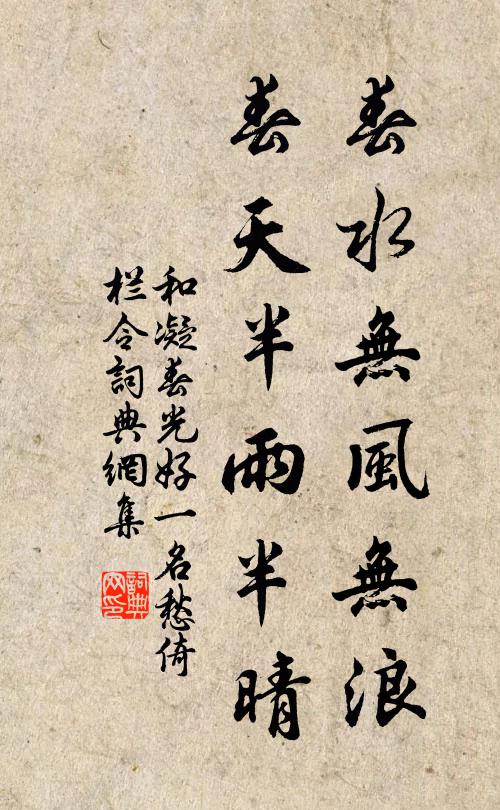 春水無風無浪
春天半雨半晴
和凝春光好一名愁倚
栏令詞典網集
詞典
网印